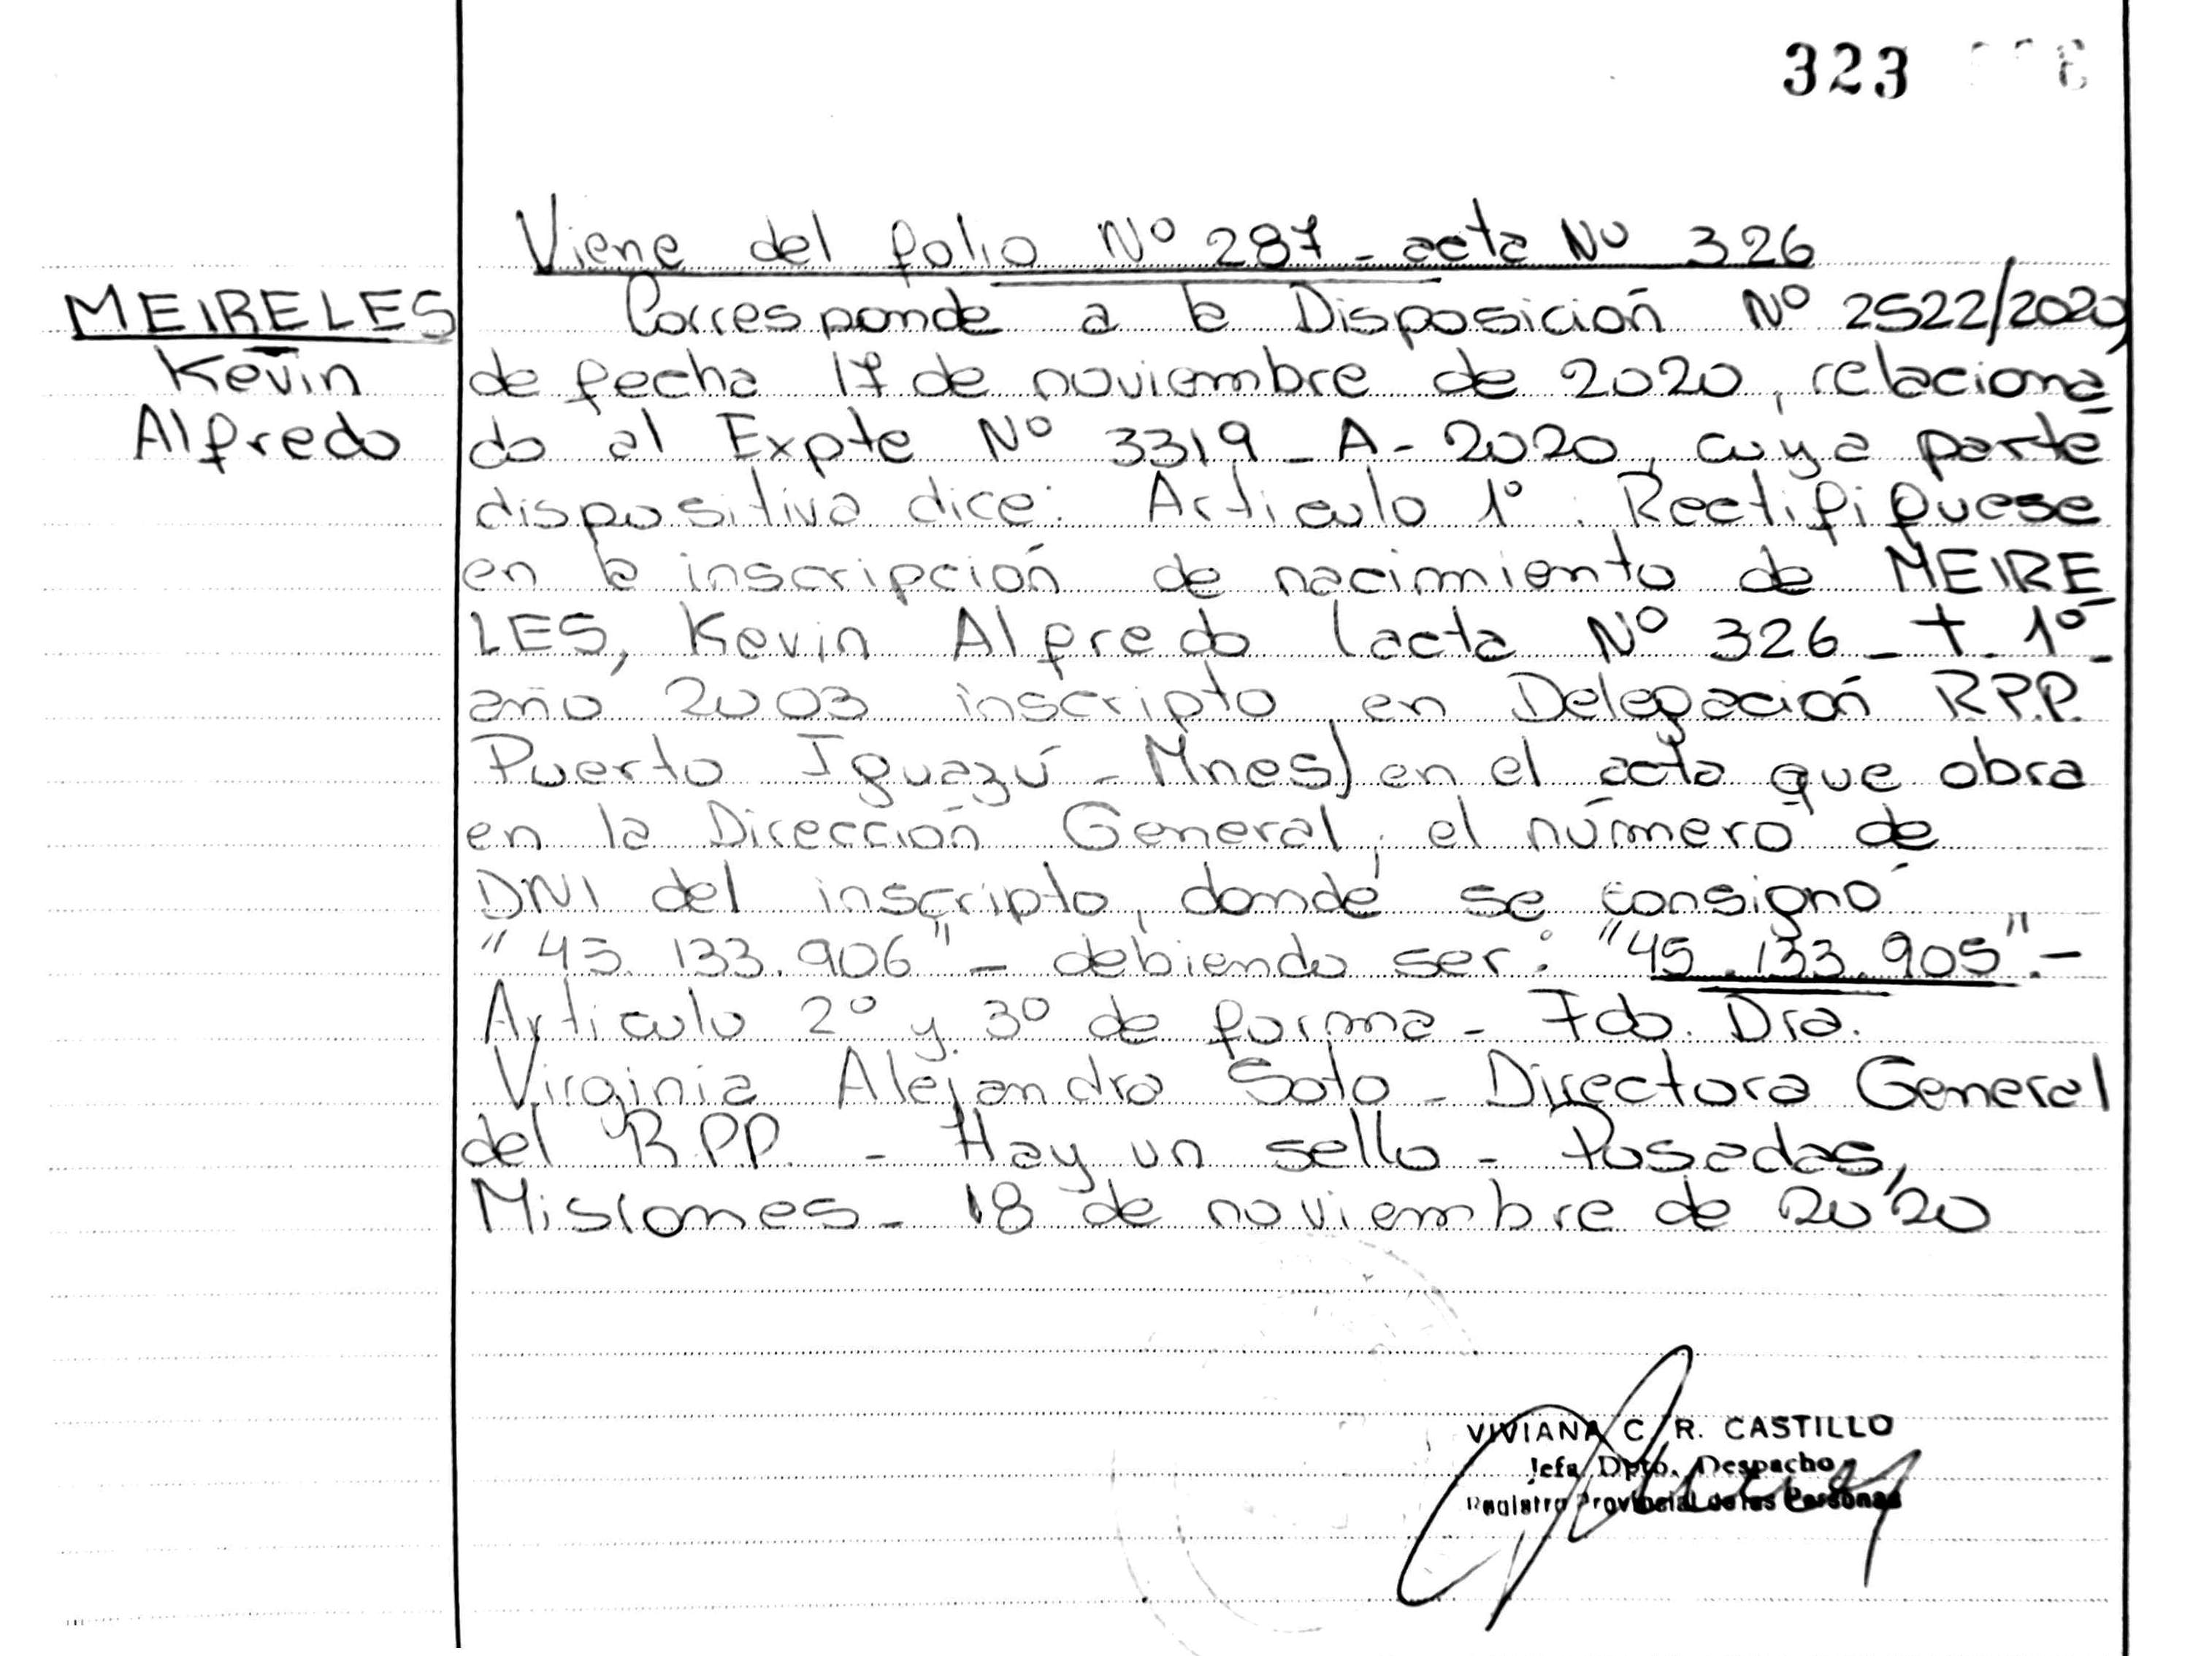 323
Viene del folio Nº 287 - acta Nº 326
MEIRELES
Kevin
Alfredo
Corresponde a la Disposición Nº 2522/2020,
de fecha 17 de noviembre de 2020, relaciona
do al Expte Nº 3319 - A - 2020, cuya parte
dispositiva dice: Articulo 1º: Rectifiquese
en la inscripción de nacimiento de MEIRE
LES, Kevin Alfredo (acta Nº 326 - t. 1º -
año 2003 inscripto en Delegación R.P.P.
Puerto Iguazú - Mnes) en el acta que obra
en la Dirección General, el número de
DNI del inscripto, donde se consignó
"45.133.906" - debiendo ser: "45.133.905".-
Articulo 2º y 3º de forma - Fdo. Dra.
Virginia Alejandra Soto - Directora General
del R.P.P. - Hay un sello - Posadas,
Misiones - 18 de noviembre de 2020
VIVIANA C. R. CASTILLO
Jefa Dpto. Despacho
Registro Provincial de las Personas